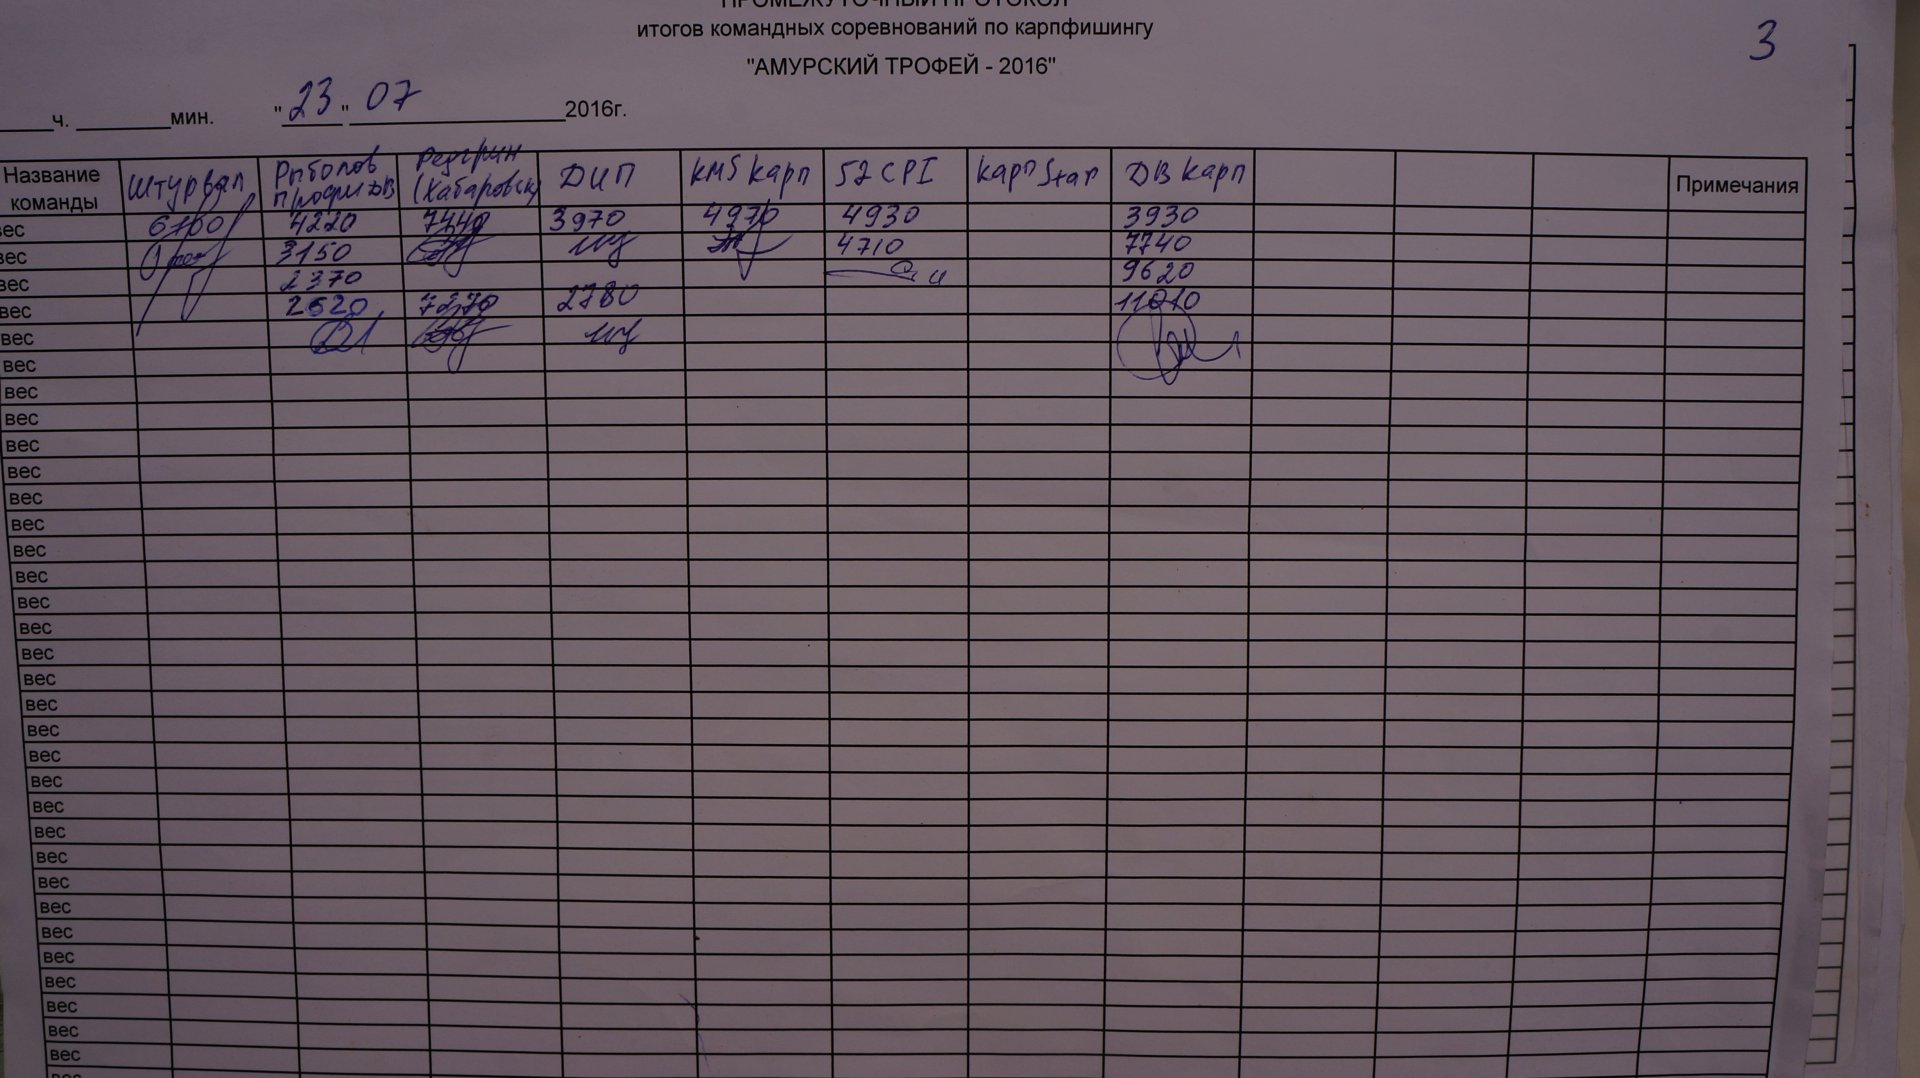 ПРОМЕЖУТОЧНЫЙ ПРОТОКОЛ
итогов командных соревнований по карпфишингу
3
"АМУРСКИЙ ТРОФЕЙ - 2016"
ч. мин. "23" 07 2016г.
Название команды Штурвал Рыболов Профи ДВ Редгрин (Хабаровск) ДИП KMS Карп 52 CPI Карп Star ДВ Карп Примечания
вес 6100 4220 7440 3970 4970 4930 3930
вес 3150 4710 7740
вес 2370 9620
вес 2620 7270 2780 11010
вес
вес
вес
вес
вес
вес
вес
вес
вес
вес
вес
вес
вес
вес
вес
вес
вес
вес
вес
вес
вес
вес
вес
вес
вес
вес
вес
вес
вес